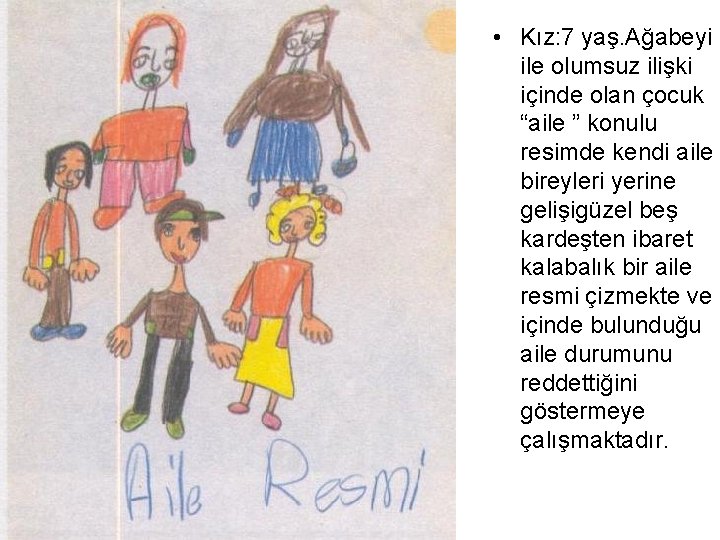 • Kız: 7 yaş. Ağabeyi
ile olumsuz ilişki
içinde olan çocuk
“aile ” konulu
resimde kendi aile
bireyleri yerine
gelişigüzel beş
kardeşten ibaret
kalabalık bir aile
resmi çizmekte ve
içinde bulunduğu
aile durumunu
reddettiğini
göstermeye
çalışmaktadır.
Aile Resmi